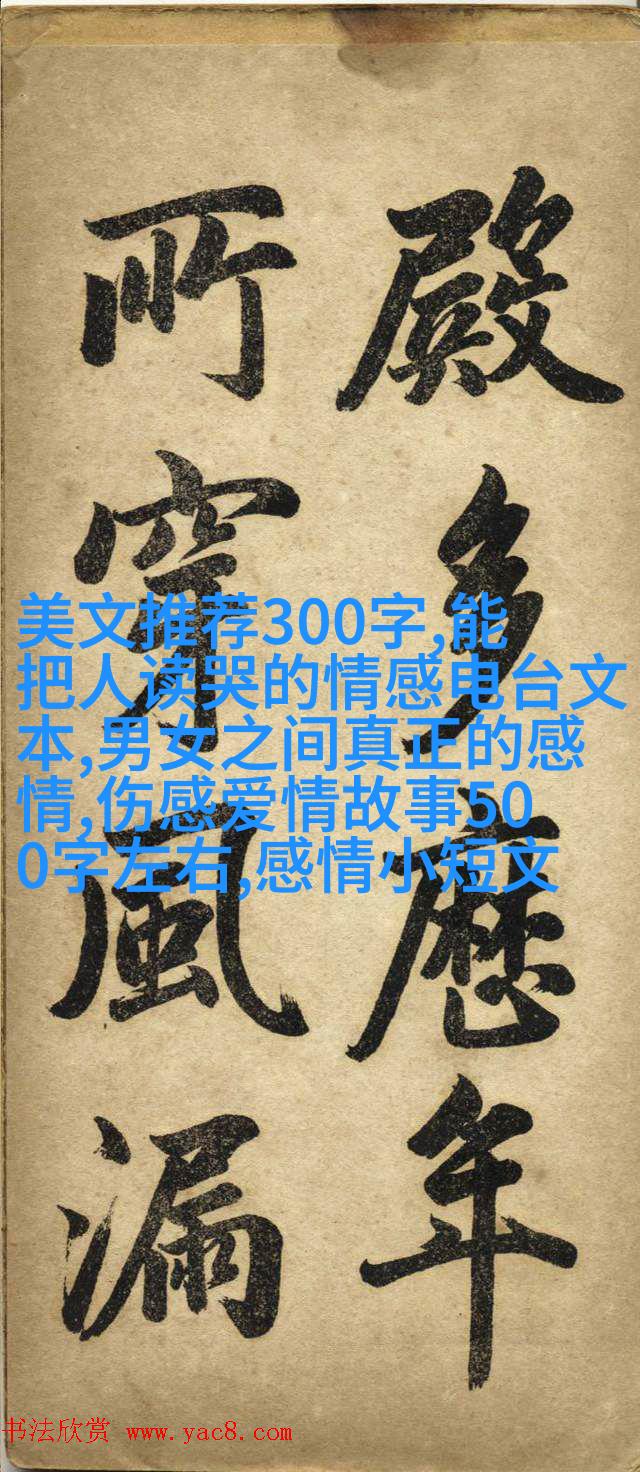 殿多歷年
所穿風漏
美文推荐300字,能
把人读哭的情感电台文
本,男女之间真正的感
情,伤感爱情故事50
0字左右,感情小短文
书法欣赏 www.yac8.com